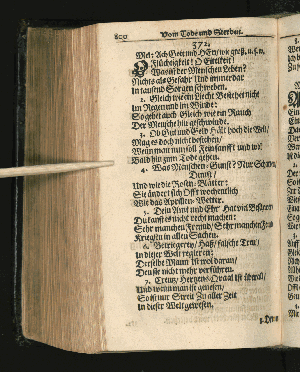 800 Vom Tode und Sterben.
372.
Mel: Ach Gott und HErr/ wie groß/ u. s. w.
O Flüchtigkeit! O Eitelkeit!
Was ist der Menschen Leben?
Nichts als Gefahr Und immerdar
In tausend Sorgen schweben.
2. Gleich wie ein Liecht Bestehet nicht
Im Regen und im Winde:
So gehet auch Gleich wie ein Rauch
Der Mensche hin geschwinde.
3. Ob Gut und Geld Hält hoch die Welt/
Mag es doch nicht bestehen/
Wenn man nun soll
Bald hin zum Tode gehen.
4. Was Menschen-Gunst? Nur Schaum/
Dunst/
Und wie die Rosen-Blätter:
Sie ändert sich Offt wunderlich
Wie das Aprillen-Wetter.
5. Dein Amt und Ehr
Du kanst es nicht recht machen:
Sehr manchen Freund/ Sehr manchen Feind
Kriegst du in allen Sachen.
6. Betriegerey/ Haß/ falsche Treu/
In dieser Welt regieren:
Derselbe Mann Ist wol daran/
Den sie nicht mehr verführen.
7. Creutz/ Hertzens-Qvaal Ist überal/
Und wenn man ist genesen/
So ist nur Streit Zu aller Zeit
In dieser Welt gewesen.